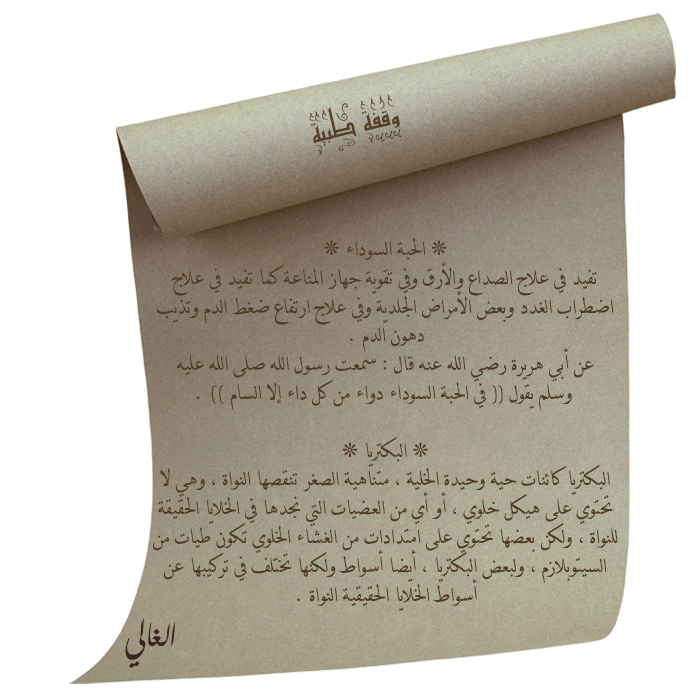 وقفة طبية
❊ الحبة السوداء ❊
تفيد في علاج الصداع والأرق وفي تقوية جهاز المناعة كما تفيد في علاج
اضطراب الغدد وبعض الأمراض الجلدية وفي علاج ارتفاع ضغط الدم وتذيب
دهون الدم .
عن أبي هريرة رضي الله عنه قال : سمعت رسول الله صلى الله عليه
وسلم يقول (( في الحبة السوداء دواء من كل داء إلا السام )) .
❊ البكتريا ❊
البكتريا كائنات حية وحيدة الخلية ، متناهية الصغر تنقصها النواة ، وهي لا
تحتوي على هيكل خلوي ، أو أي من العضيات التي نجدها في الخلايا الحقيقة
للنواة ، ولكن بعضها تحتوي على امتدادات من الغشاء الخلوي تكون طيات من
السيتوبلازم ، ولبعض البكتريا ، أيضا أسواط ولكنها تختلف في تركيبها عن
أسواط الخلايا الحقيقية النواة .
الغالي